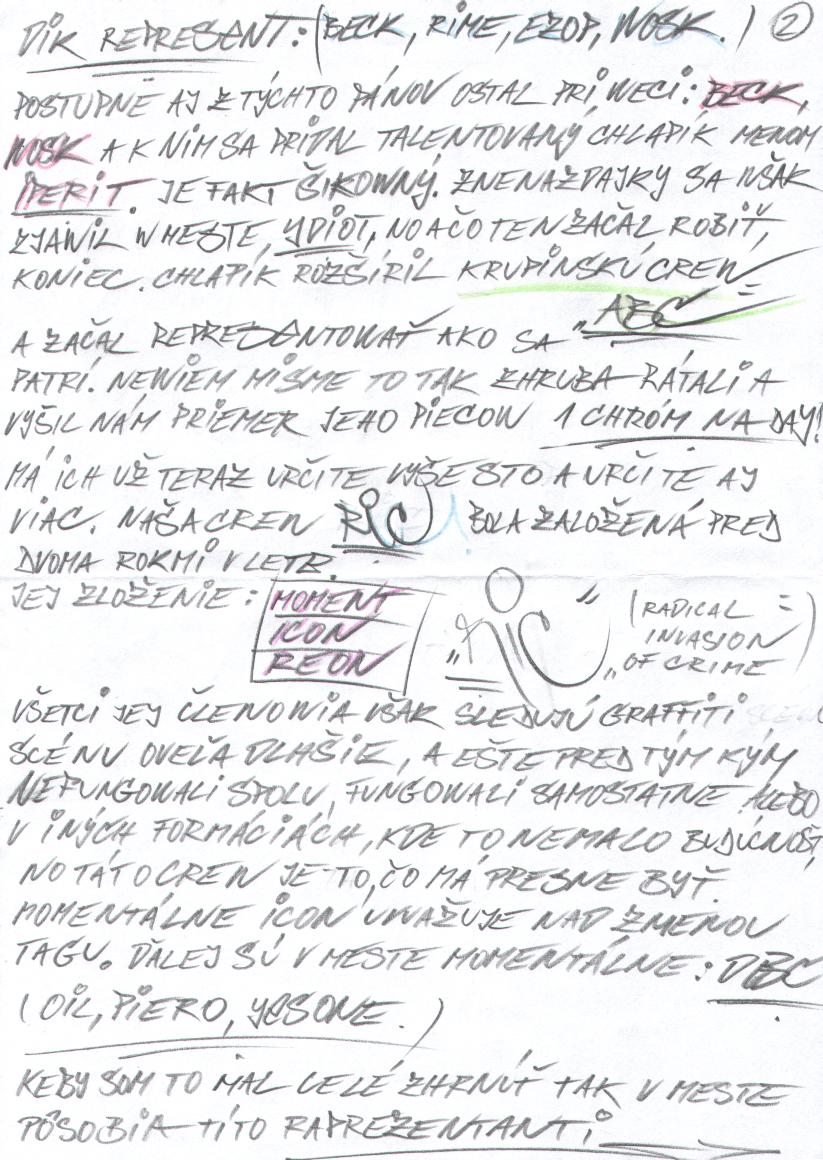 DIK REPRESENT: (BECK, RIME, EZOP, WOSK.) 2
POSTUPNE AJ Z TÝCHTO PÁNOV OSTAL PRI WECI: BECK,
WOSK A K NIM SA PRIDAL TALENTOVANÝ CHLAPÍK MENOM
IPERIT. JE FAKT ŠIKOWNÝ. ZNENAZDAJKY SA WŠAK
ZJAWIL W MESTE, YDIOT, NO A ČO TEN ZAČAL ROBIŤ,
KONIEC. CHLAPÍK ROZŠÍRIL KRUPINSKÚ CREW
"AEC"
A ZAČAL REPRESENTOWAŤ AKO SA
PATRÍ. NEWIEM MI SME TO TAK ZHRUBA RÁTALI A
VYŠIL NÁM PRIEMER JEHO PIECOW 1 CHRÓM NA DAY!
MÁ ICH UŽ TERAZ URČITE VYŠE STO A URČITE AJ
VIAC. NAŠA CREW RIC BOLA ZALOŽENÁ PRED
DVOMA ROKMI V LETE.
JEJ ZLOŽENIE: MOMENT
ICON
REON
"RIC" (RADICAL
INVASION
"OF CRIME")
VŠETCI JEJ ČLENOWIA WŠAK SLEDUJÚ GRAFFITI
SCÉNU OVEĽA DLHŠIE, A EŠTE PRED TÝM KÝM
NEFUNGOWALI SPOLU, FUNGOWALI SAMOSTATNE ALEBO
V INÝCH FORMÁCIÁCH, KDE TO NEMALO BUDÚCNOSŤ,
NO TÁTO CREW JE TO, ČO MÁ PRESNE BYŤ.
MOMENTÁLNE ICON UWAŽUJE NAD ZMENOU
TAGU. ĎALEJ SÚ V MESTE MOMENTÁLNE: DBC
(OIL, PIERO, YESONE.)
KEBY SOM TO MAL CELÉ ZHRNÚŤ TAK V MESTE
PÔSOBIA TÍTO RAPREZENTANTI